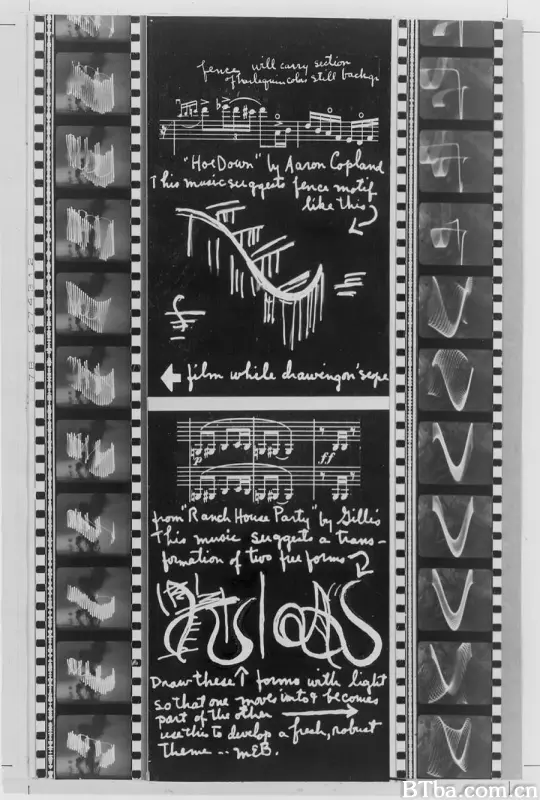 fence will carry section
of harlequin color still backg
"HoeDown" by Aaron Copland
This music suggests fence motif
like this
film while drawing on 'scope
p ff
from "Ranch House Party" by Gillis
This music suggests a trans-
formation of two free forms
Draw these forms with light
so that one moves into & becomes
part of the other
use this to develop a fresh, robust
theme -- MEB.
BTba.com.cn